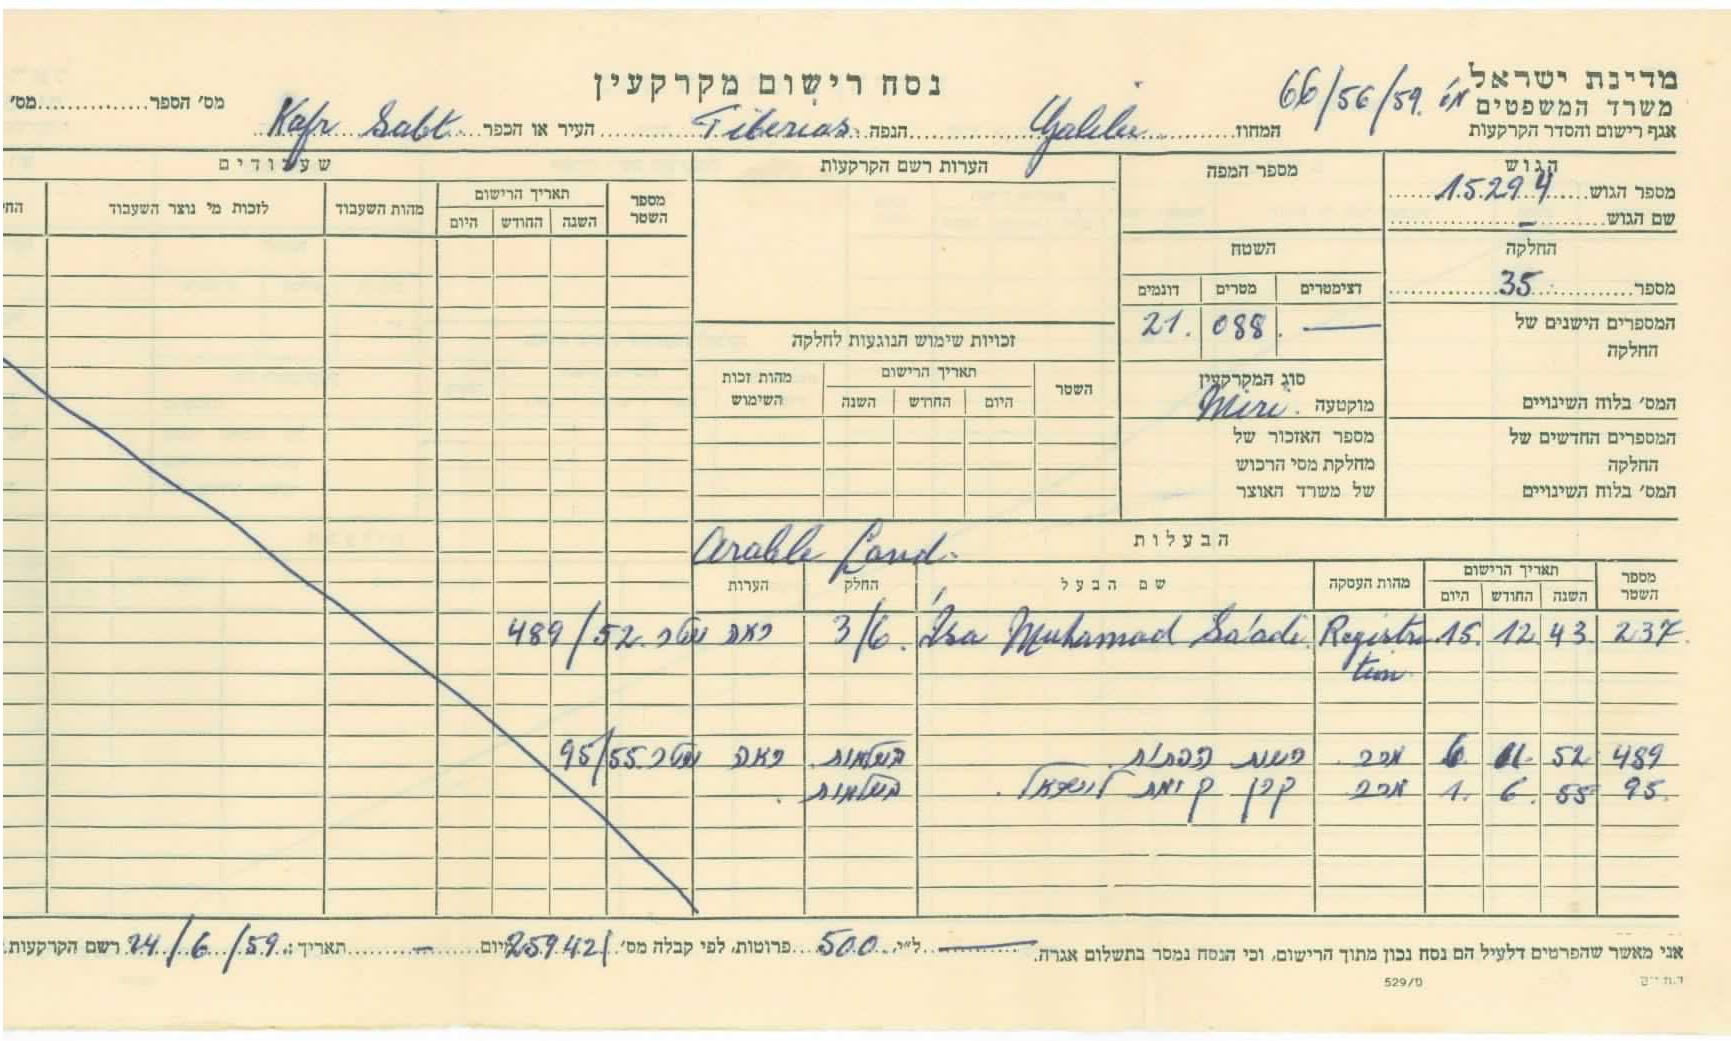 מדינת ישראל
משרד המשפטים
אגף רישום והסדר הקרקעות
מס' 66/56/59.
נסח רישום מקרקעין
המחוז Galilee הנפה Tiberias העיר או הכפר Kafr Sabt
מס' הספר מס'
הגוש
מספר הגוש 15294
שם הגוש –
החלקה
מספר 35
המספרים הישנים של
החלקה
המס' בלוח השינויים
המספרים החדשים של
החלקה
המס' בלוח השינויים
מספר המפה
השטח
דצימטרים מטרים דונמים
— 088. 21.
סוג המקרקעין
מוקטעה Miri.
מספר האזכור של
מחלקת מסי הרכוש
של משרד האוצר
הערות רשם הקרקעות
זכויות שימוש הנוגעות לחלקה
השטר תאריך הרישום מהות זכות
השימוש
היום החודש השנה
שעבודים
מספר
השטר תאריך הרישום מהות השעבוד לזכות מי נוצר השעבוד
השנה החודש היום
הבעלות
Arable Land.
מספר
השטר תאריך הרישום מהות העסקה שם הבעל החלק הערות
השנה החודש היום
237. 43. 12 15. Registra
tion 'Isa Muhamad Sa'adi. 3/6. ראה שטר 489/52.
489 52 11. 6 מכר רשות הפתוח. בשלמות. ראה שטר 95/55.
95. 55 6. 1. מכר קרן קימת לישראל. בשלמות.
אני מאשר שהפרטים דלעיל הם נסח נכון מתוך הרישום, וכי הנסח נמסר בתשלום אגרה. — ל"י, 500 פרוטות, לפי קבלה מס' 259421 מיום — תאריך: 24/6/59. רשם הקרקעות.
מ/529